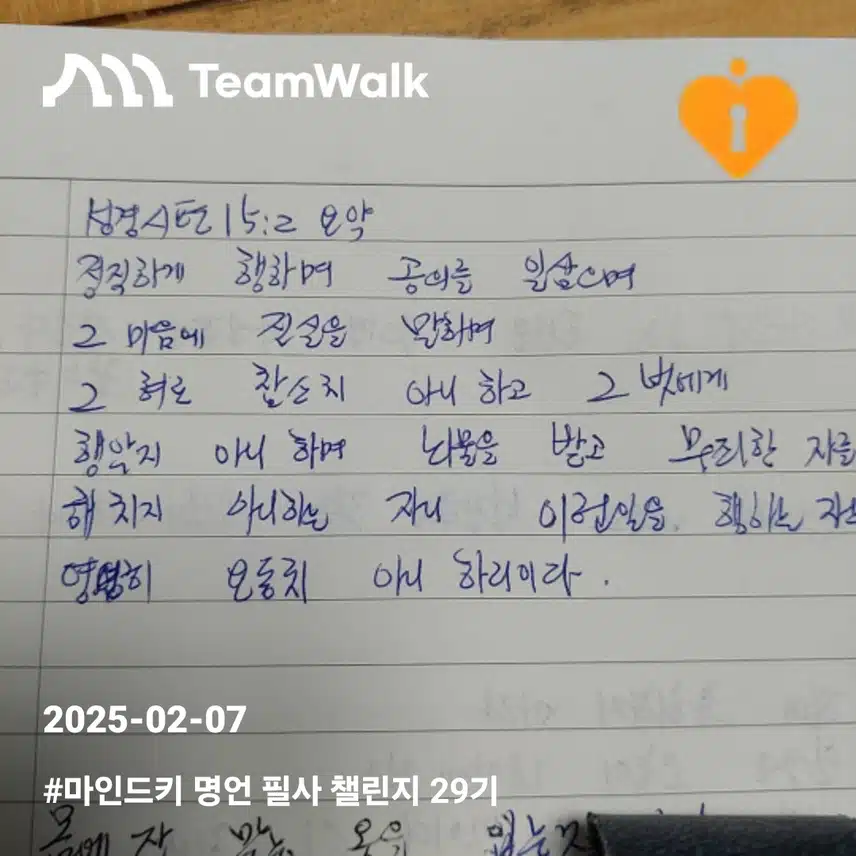 TeamWalk
성경시편 15:2 요약
정직하게 행하며 공의를 일삼으며
그 마음에 진실을 말하며
그 혀로 참소치 아니 하고 그 벗에게
행악지 아니 하며 뇌물을 받고 무죄한 자를
해치지 아니하는 자니 이런일을 행하는 자는
영영히 요동치 아니 하리이다.
2025-02-07
#마인드키 명언 필사 챌린지 29기